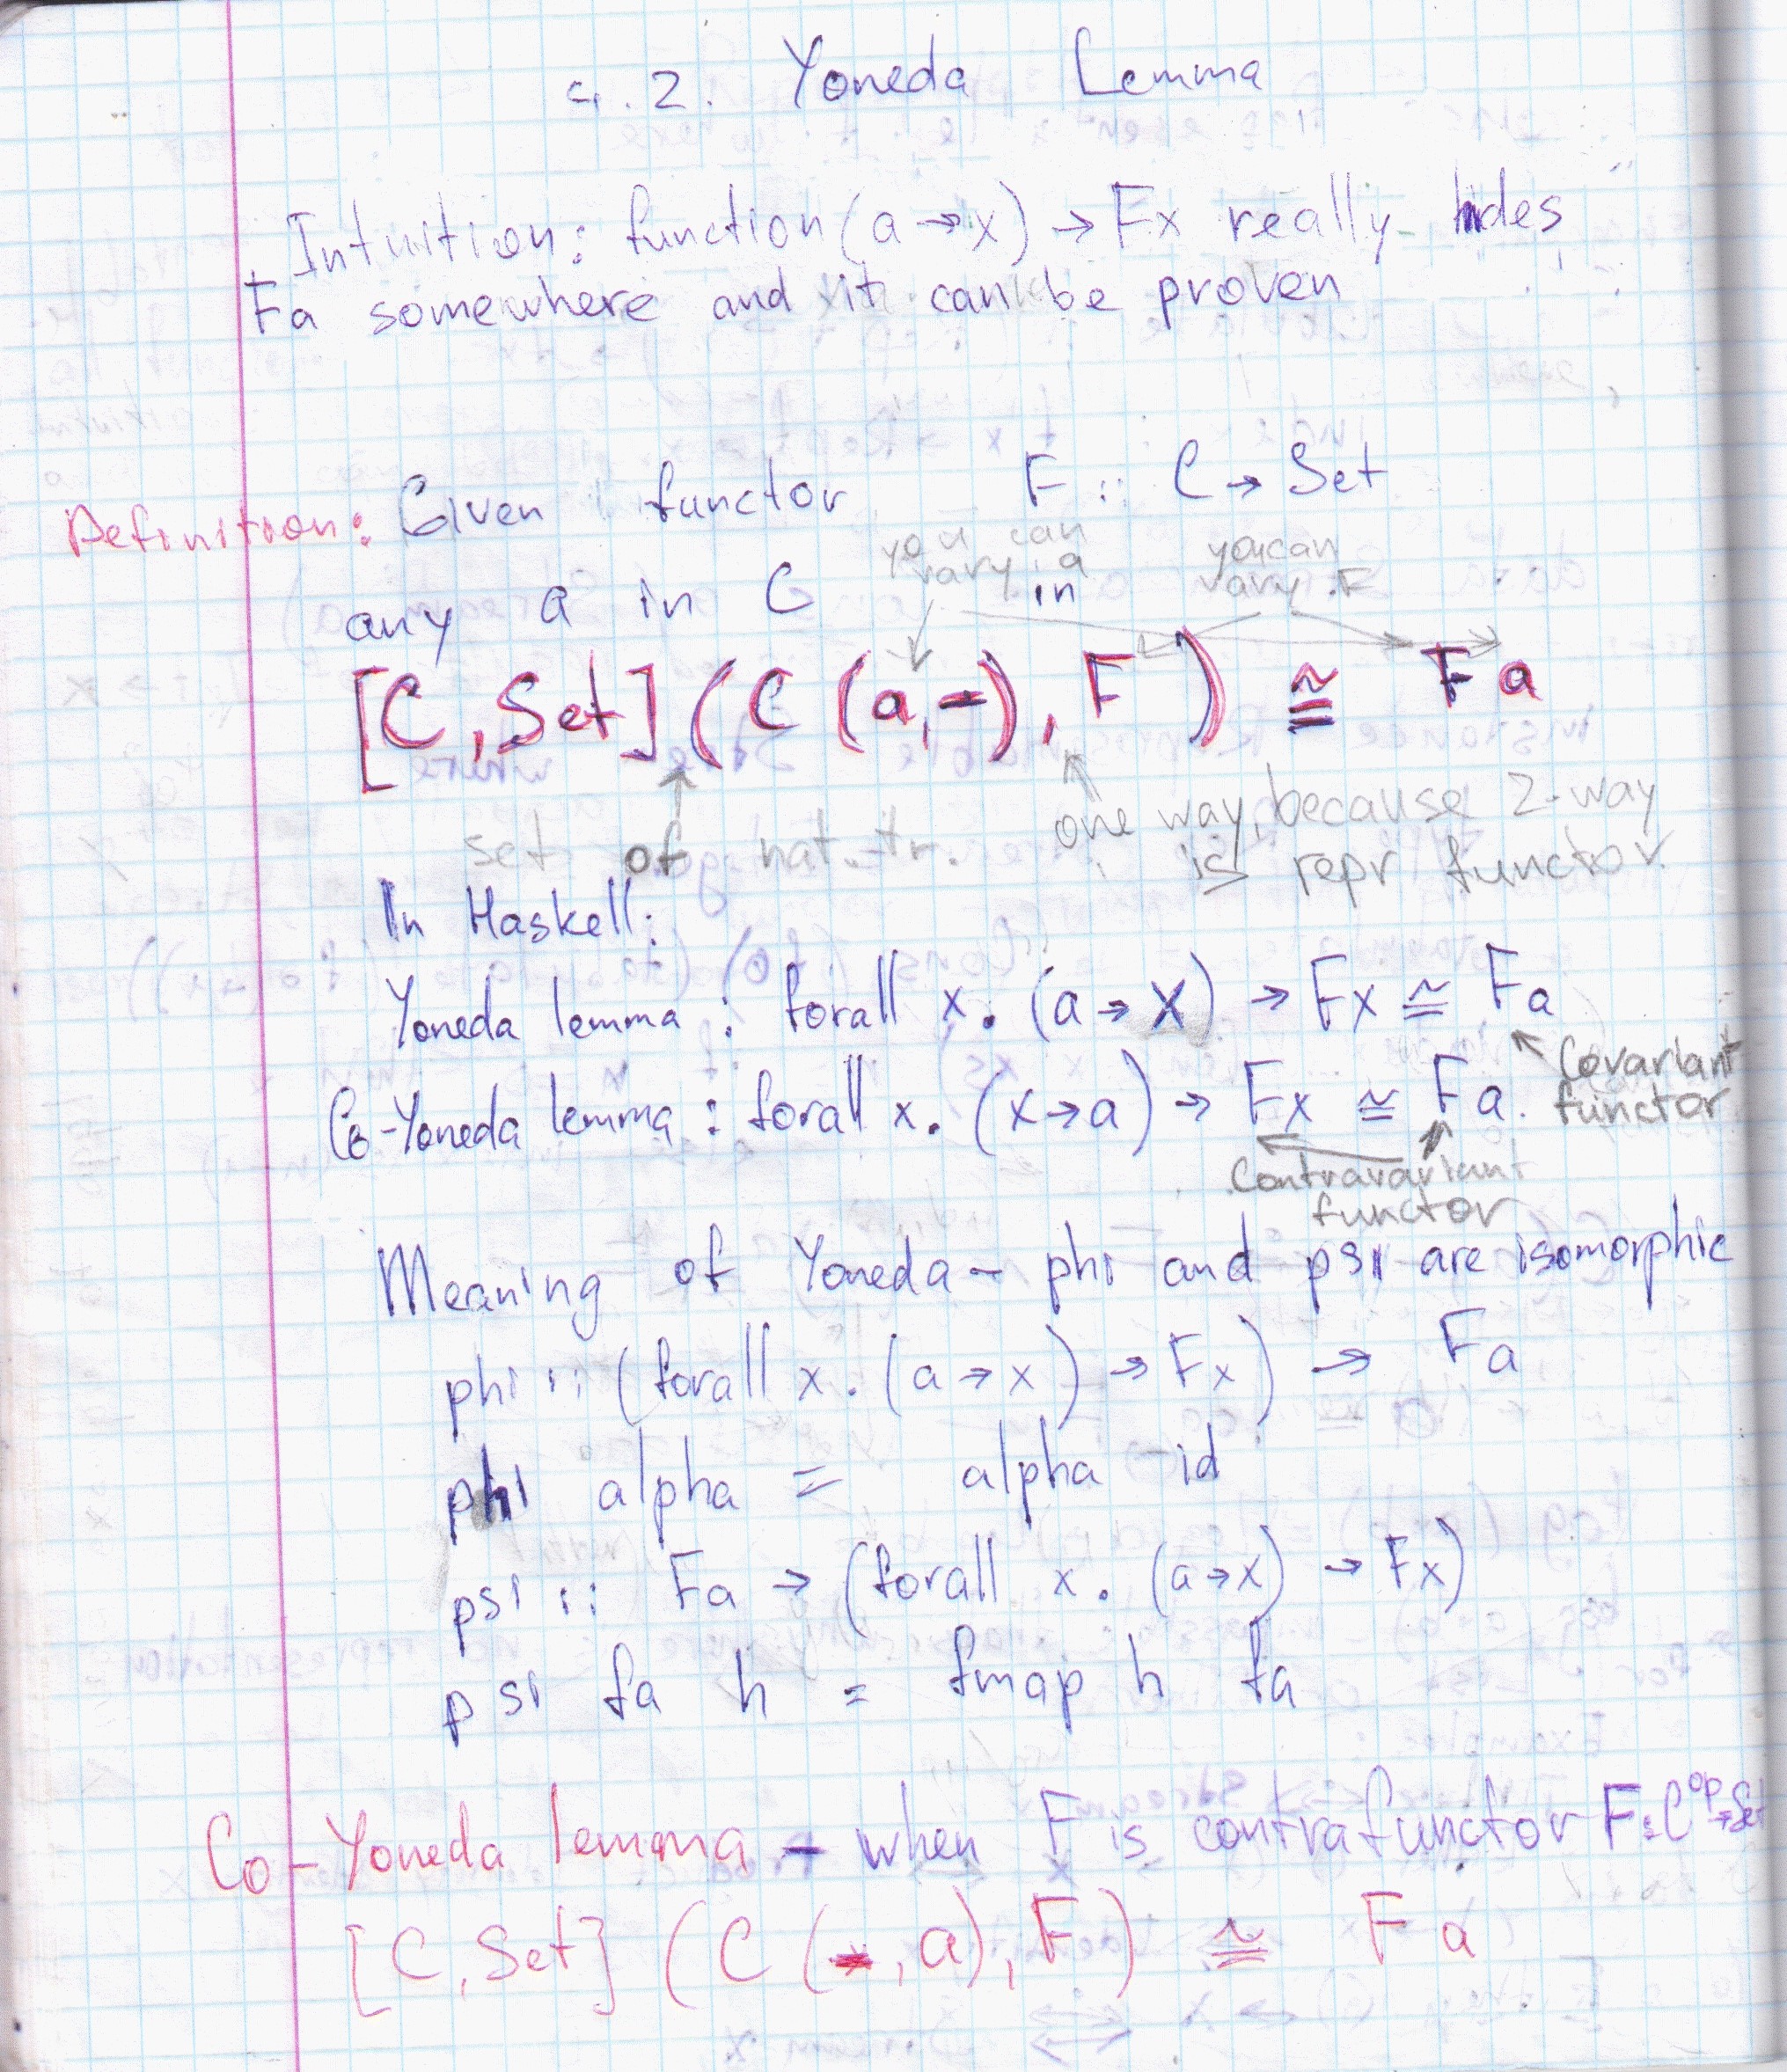 4.2. Yoneda Lemma
Intuition: function (a → x) → Fx really hides
Fa somewhere and it can be proven
Definition: Given functor F :: C → Set
you can vary a
you can vary F
any a in C in
[C, Set] (C (a, -), F) ≅ Fa
set of nat. tr.
one way, because 2-way
is repr functor
In Haskell:
Yoneda lemma : forall x. (a → x) → Fx ≅ Fa
Covariant functor
Co-Yoneda lemma : forall x. (x → a) → Fx ≅ Fa.
Contravariant
functor
Meaning of Yoneda - phi and psi are isomorphic
phi :: (forall x. (a → x) → Fx) → Fa
phi alpha = alpha id
psi :: Fa → (forall x. (a → x) → Fx)
psi fa h = fmap h fa
Co-Yoneda lemma - when F is contrafunctor F : C^op → Set
[C, Set] (C (-, a), F) ≅ Fa